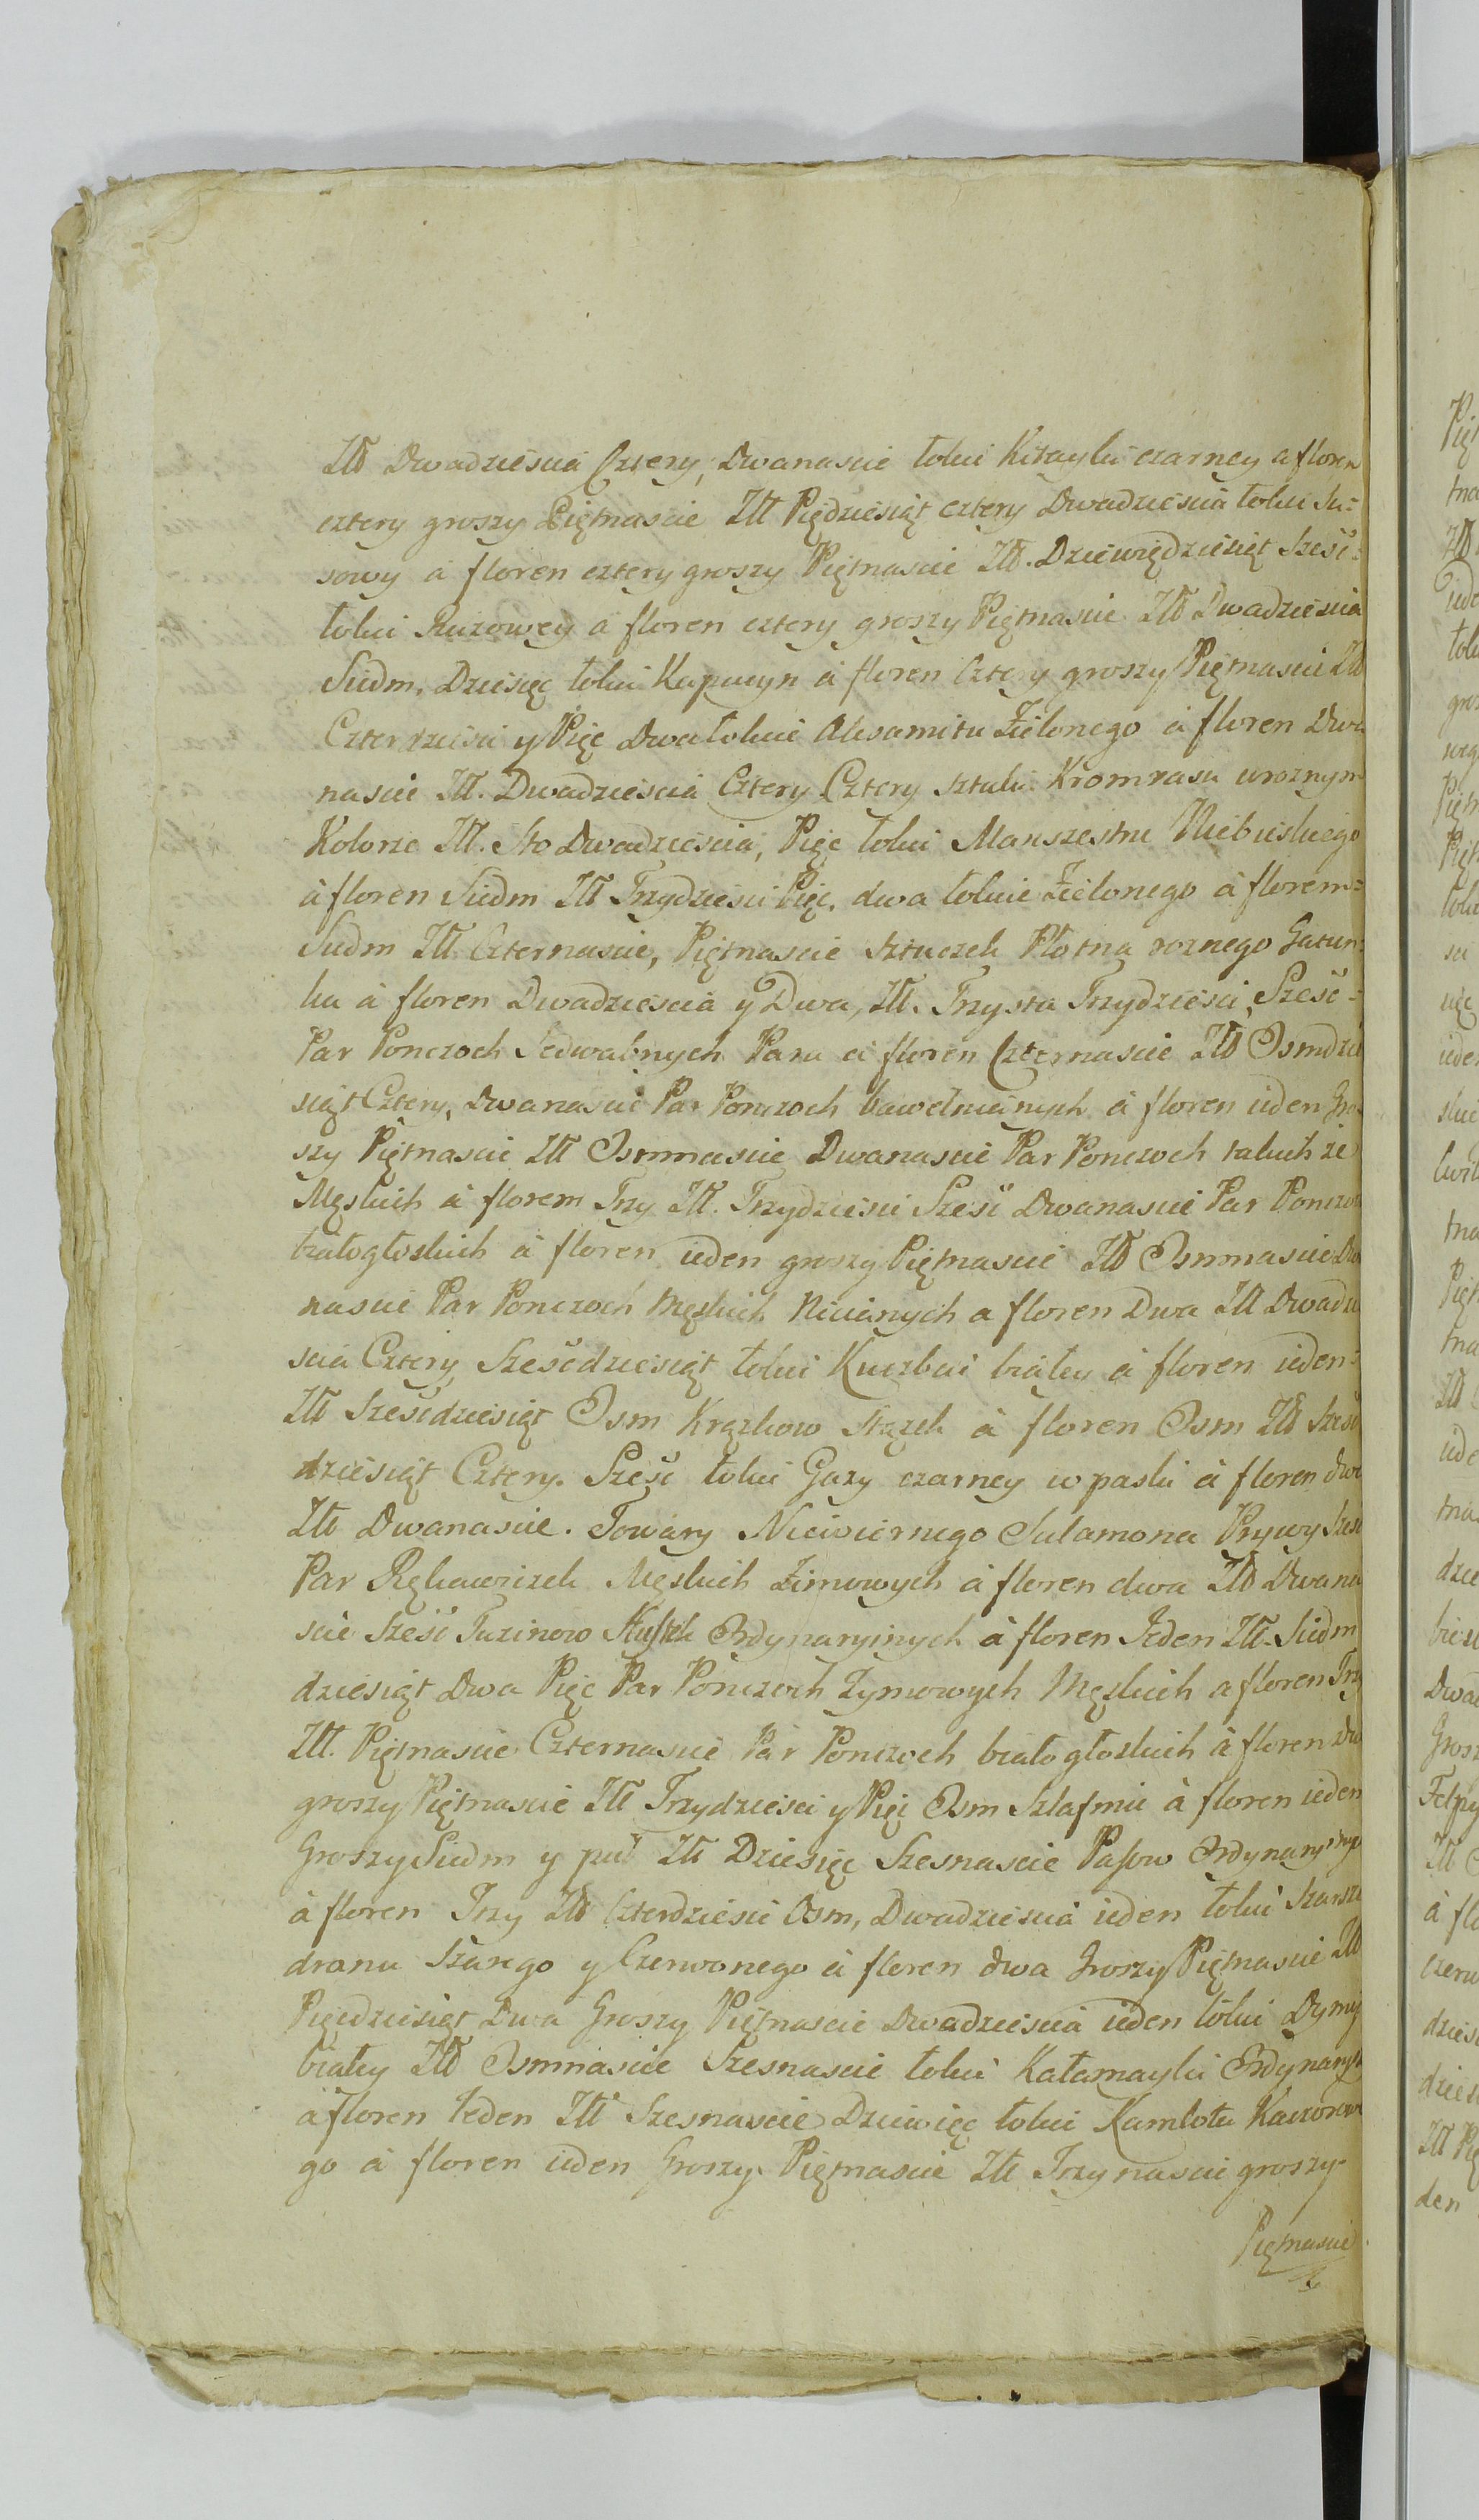 Złł Dwadziescia Cztery, Dwanascie łokci Kitayki czarney a floren
cztery groszy Piętnascie Złł Piędziesiąt cztery Dwadziescia łokci Su=
sowy á floren cztery groszy Piętnascie Złł. Dziewiędziesiąt Sześć=
łokci Ruzowey á floren cztery groszy Piętnascie Złł Dwadziescia
Siedm, Dziesięc łokci Kapucyn á floren Cztery groszy Piętnascie Złł
Czterdziesci y Pięc Dwa łokcie Alxamitu Zielonego á floren Dwa
nascie Złł. Dwadziescia Cztery Cztery sztuki Kromrasu wroznym
Kolorze Złł. Sto Dwadziescia, Pięc łokci Manszestru Niebieskiego
á floren Siedm Złł Trzydziesci Pięc, dwa łokcie Zielonego á florem=
Siedm Złł. Czternascie, Piętnascie Sztuczek Płotna roznego Gatun=
ku á floren Dwadziescia y Dwa, Złł. Trzysta Trzydziesci, Sześć=
Par Ponczoch Jedwabnych Para á floren Czternascie Złł Osmdzie
siąt Cztery, Dwanascie Par Ponczoch bawełnianych á floren ieden Gro
szy Piętnascie Złł Osmnascie Dwanascie Par Ponczoch takich ze
Męskich á florem Trzy Złł. Trzydziesci Sześć Dwanascie Par Ponczo
białogłoskich á floren ieden groszy Piętnascie Złł Osmnascie Dwa
nascie Par Ponczoch Męskich Nicianych a floren Dwa Złł Dwadzie
scia Cztery Sześcdziesiąt łokci Kuczbai białey á floren ieden=
Złł Sześcdziesiąt Osm Krązkow Stązek á floren Osm Złł Sześć
dziesiąt Cztery. Sześć łokci Gazy czarney w paski á floren dwa
Złł Dwanascie. Towary Niewiernego Sulamona Prywy Sześć
Par Rękawiczek Męskich Zimowych á floren dwa Złł Dwana
scie Sześć Tuzinow Husteh Ordynaryinych á floren Jeden Złł. Siedm
dziesiąt Dwa Pięc Par Ponczoch Zymowych Męskich a floren Trzy
Złł. Piętnascie Czternascie Par Ponczoch białogłoskich á floren dwa
groszy Piętnascie Złł Trzydziesci y Pięc Osm Szlafmic á floren ieden
Groszy Siedm y puł Złł Dziesięc Szesnascie Pasow Ordynaryinych
á floren Trzy Złł Czterdziesci Osm, Dwadziescia ieden łokci Szarsze
dranu Szarego y Czerwonego á floren dwa Groszy Piętnascie Złł
Pięcdziesiąt Dwa Groszy Piętnascie Dwadziescia ieden łokci Dymy
białey Złł Osmnascie Szesnascie łokci Kałamayki Ordynaryi
á floren Jeden Złł Szesnascie Dziewięc łokci Kamlotu Kaczorowe
go á floren ieden Groszy Piętnascie Złł Trzynascie groszy
Piętnascie